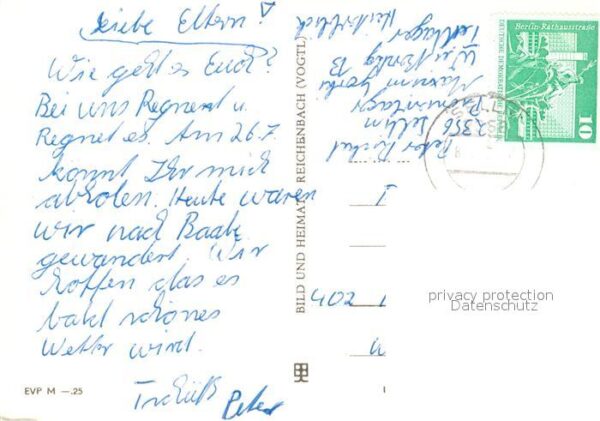 Liebe Eltern!
Wie geht es Euch?
Bei uns Regnet u.
Regnet es. Am 26.7.
könnt Ihr mich
abholen. Heute waren
wir nach Baabe
gewandert. Wir
hoffen das es
bald schönes
Wetter wird.
Tschüß Peter
EVP M —.25
BILD UND HEIMAT REICHENBACH (VOGTL)
Peter
2356 Sellin
Pionierlager
Maxim Gorki
Zeltlager
402
Berlin-Rathausstraße
DEUTSCHE DEMOKRATISCHE REPUBLIK
10
privacy protection
Datenschutz